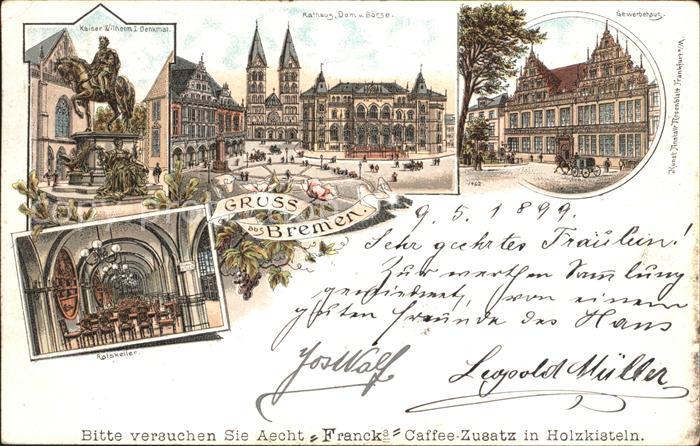 Kaiser Wilhelm I Denkmal.
Rathaus, Dom u. Börse.
Gewerbehaus.
Kunst-Anstalt Rosenblatt Frankfurt a/M.
GRUSS
aus BREMEN.
Ratskeller.
9. 5. 1899.
Sehr geehrtes Fräulein!
Zur werthen Sammlung
gewidmet, von einem
guten Freunde des Haus
Jos Walf
Leopold Müller
Bitte versuchen Sie Aecht „Francks“ Caffee-Zusatz in Holzkisteln.